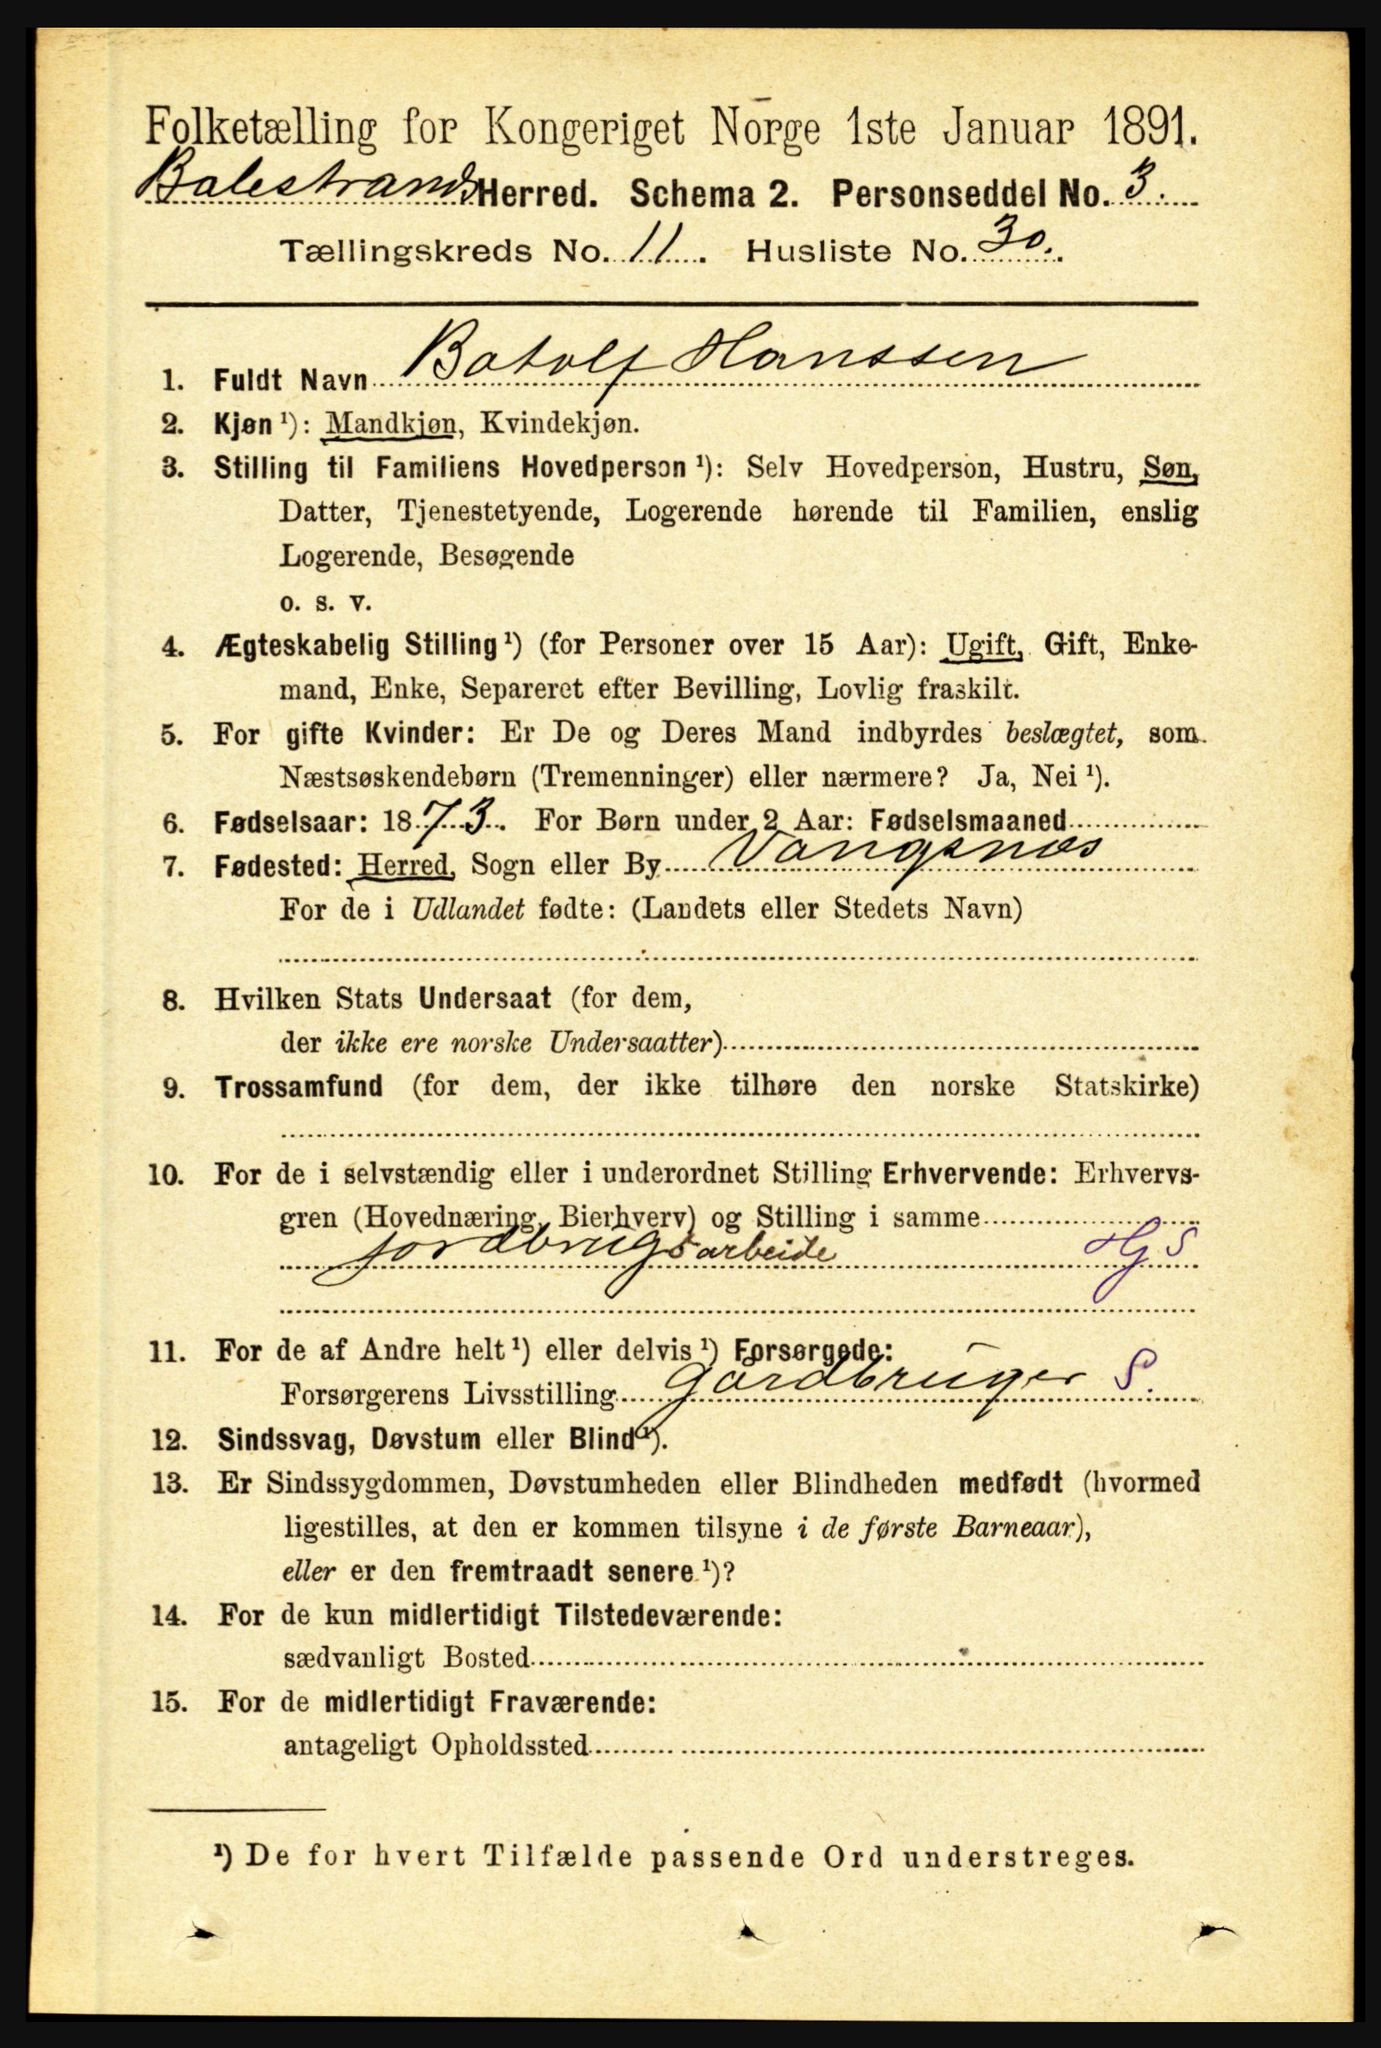 Folketælling for Kongeriget Norge 1ste Januar 1891.
Balestrands Herred. Schema 2. Personseddel No. 3.
Tællingskreds No. 11. Husliste No. 30.
1. Fuldt Navn Botolf Hanssen
2. Kjøn ¹): Mandkjøn, Kvindekjøn.
3. Stilling til Familiens Hovedperson ¹): Selv Hovedperson, Hustru, Søn,
Datter, Tjenestetyende, Logerende hørende til Familien, enslig
Logerende, Besøgende
o. s. v.
4. Ægteskabelig Stilling ¹) (for Personer over 15 Aar): Ugift, Gift, Enke-
mand, Enke, Separeret efter Bevilling, Lovlig fraskilt.
5. For gifte Kvinder: Er De og Deres Mand indbyrdes beslægtet, som
Næstsøskendebørn (Tremenninger) eller nærmere? Ja, Nei ¹).
6. Fødselsaar: 1873. For Børn under 2 Aar: Fødselsmaaned
7. Fødested: Herred, Sogn eller By Vangsnæs
For de i Udlandet fødte: (Landets eller Stedets Navn)
8. Hvilken Stats Undersaat (for dem,
der ikke ere norske Undersaatter)
9. Trossamfund (for dem, der ikke tilhøre den norske Statskirke)
10. For de i selvstændig eller i underordnet Stilling Erhvervende: Erhvervs-
gren (Hovednæring, Bierhverv) og Stilling i samme
jordbrugsarbeide Hj S
11. For de af Andre helt ¹) eller delvis ¹) Forsørgede:
Forsørgerens Livsstilling Gårdbruger S.
12. Sindssvag, Døvstum eller Blind ¹).
13. Er Sindssygdommen, Døvstumheden eller Blindheden medfødt (hvormed
ligestilles, at den er kommen tilsyne i de første Barneaar),
eller er den fremtraadt senere ¹)?
14. For de kun midlertidigt Tilstedeværende:
sædvanligt Bosted
15. For de midlertidigt Fraværende:
antageligt Opholdssted
¹) De for hvert Tilfælde passende Ord understreges.